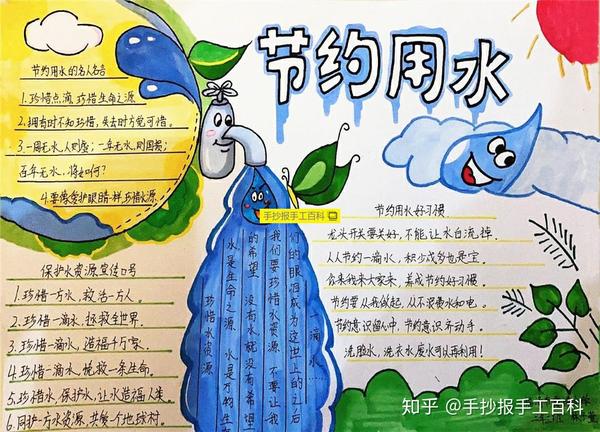 节约用水
节约用水的名人名言
1.珍惜点滴,珍惜生命之源
2.拥有时不知珍惜,失去时方觉可惜。
3.一周无水,人则愁;一年无水,则国衰;
百年无水,将如何?
4.要像爱护眼睛一样,珍惜水源
保护水资源宣传口号
1.珍惜一方水,救活一方人。
2.珍惜一滴水,拯救全世界。
3.珍惜一滴水,造福千万家。
4.珍惜一滴水,挽救一条生命。
5.珍惜水,保护水,让水造福人类。
6.同护一方水资源,共享一个地球村。
手抄报手工百科
一滴水
们的眼泪成为这世上的之后
我们要珍惜水资源 不要让我
的希望 没有水就没有希望
水是生命之源 水是万物生
珍惜水资源
节约用水好习惯
龙头开关要关好,不能让水白流掉。
人人节约一滴水,积少成多也是宝
合来我来大家来,养成节约好习惯。
节约要从我做起,从不浪费水和电。
节约意识留心中,节约意识齐动手。
洗脸水,洗衣水废水可以再利用!
知乎 @手抄报手工百科